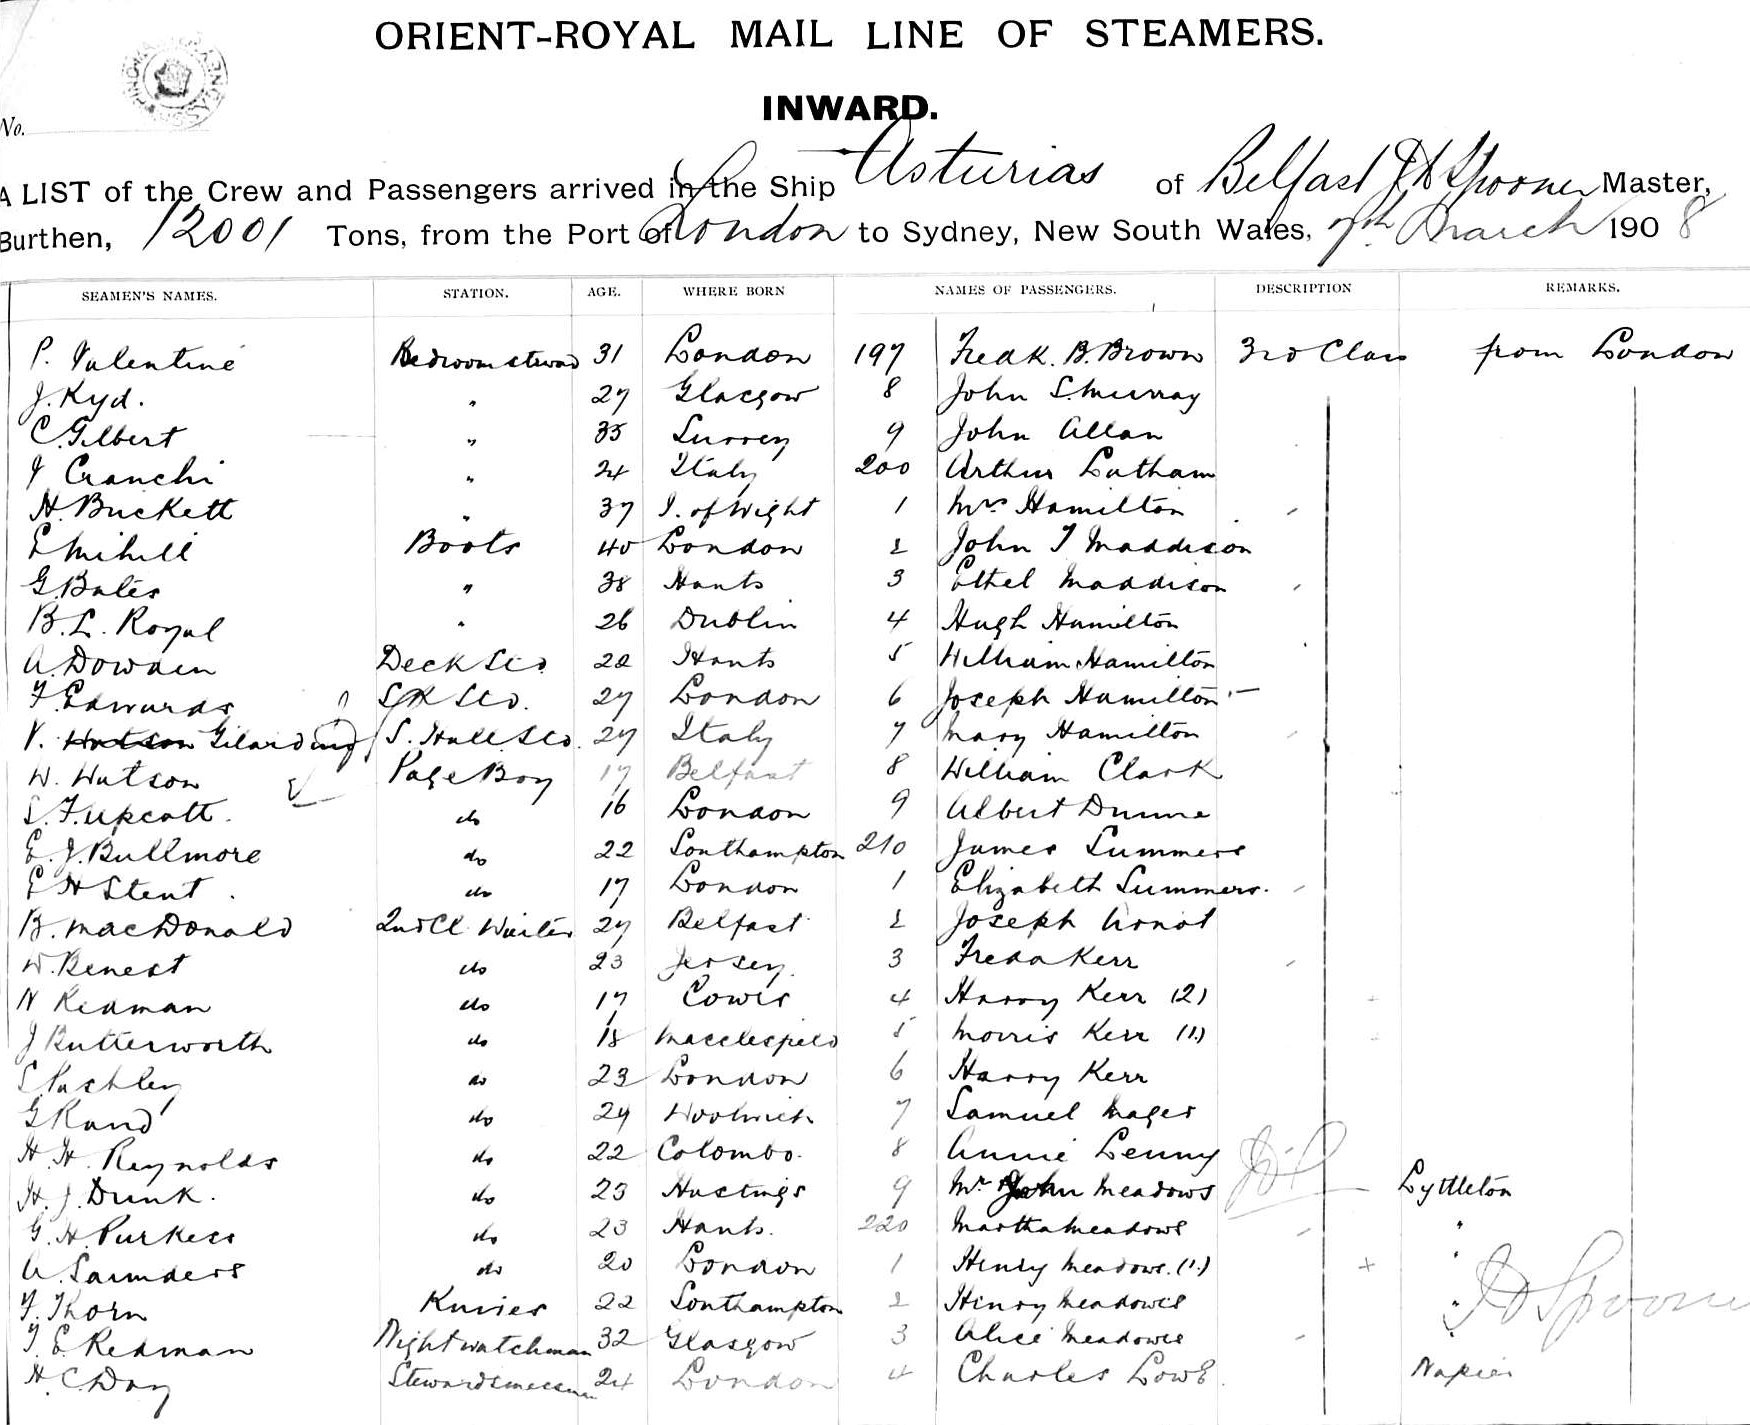 ORIENT-ROYAL MAIL LINE OF STEAMERS.
INWARD.
No.
A LIST of the Crew and Passengers arrived in the Ship Asturias of Belfast J D Spooner Master,
Burthen, 12001 Tons, from the Port of London to Sydney, New South Wales, 7th March 1908
SEAMEN'S NAMES. STATION. AGE. WHERE BORN NAMES OF PASSENGERS. DESCRIPTION REMARKS.
P. Valentine Bedroom steward 31 London 197 Fredk. B. Brown 3rd Class from London
J. Kyd. " 27 Glasgow 8 John S. Murray
C. Gilbert " 35 Surrey 9 John Allan
Cranchi " 24 Italy 200 Arthur Latham
H. Buckett " 37 I. of Wight 1 Mrs Hamilton
E Mihill Boots 40 London 2 John T Maddison
G Bates " 38 Hants 3 Ethel Maddison
B. L. Royal " 26 Dublin 4 Hugh Hamilton
A. Dowden Deck Std. 22 Hants 5 William Hamilton
F. Edwards S R Std. 27 London 6 Joseph Hamilton
V. Watson Gilardino S. Hall Std. 27 Italy 7 Mary Hamilton
W. Watson Page Boy 17 Belfast 8 William Clark
S. F. Upcott. do 16 London 9 Albert Dunne
E. J. Bullmore do 22 Southampton 210 James Summers
E H Stent. do 17 London 1 Elizabeth Summers.
B. MacDonald 2nd Cl. Waiter 27 Belfast 2 Joseph Arnot
W. Benest do 23 Jersey. 3 Freda Kerr
N Redman do 17 Cowes 4 Harry Kerr (2)
J Butterworth do 18 Macclesfield 5 Morris Kerr (1.)
S Pashley do 23 London 6 Harry Kerr
G Rand do 24 Woolwich 7 Samuel Mager
H. H. Reynolds do 22 Colombo. 8 Annie Lenny
H. J. Drink. do 23 Hastings 9 Mr John Meadows Lyttleton
G. H. Purkess do 23 Hants. 220 Martha Meadows "
A. Saunders do 20 London 1 Henry Meadows. (1.) "
F. Thorn Knives 22 Southampton 2 Henry Meadows "
J D Spooner
F. E. Redman Nightwatchman 32 Glasgow 3 Alice Meadows
H. C. Day Stewards messman 24 London 4 Charles Lowe. Napier